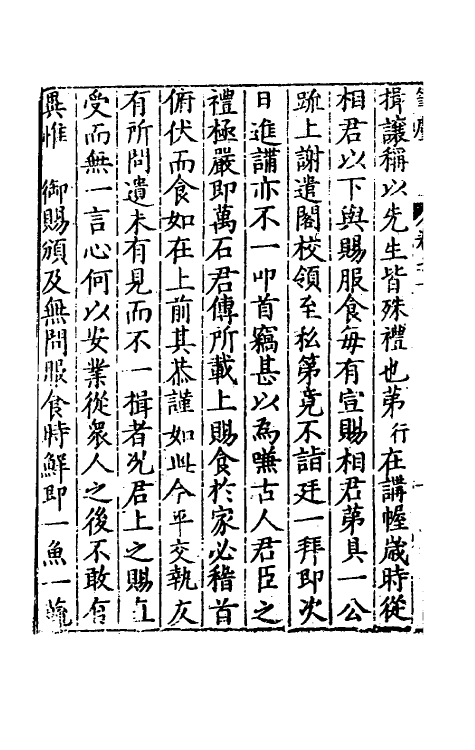 揖讓稱以先生皆殊禮也弟行在講幄歲時從
相君以下與賜服食每有宣賜相君第具一公
䟽上謝遣閣校領至私第竟不詣廷一拜即次
日進講亦不一叩首竊甚以為嗛古人君臣之
禮極嚴即萬石君傳所載上賜食於家必稽首
俯伏而食如在上前其恭謹如此今平交執友
有所問遺未有見而不一揖者況君上之賜直
受而無一言心何以安業從衆人之後不敢有
異惟 御賜頒及無問服食時鮮即一魚一蔬